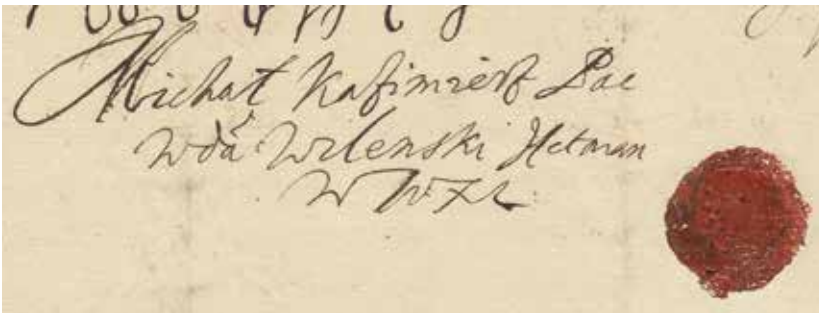 Michał Kaſimierſz Pac
Wdá Wilenski Hetman
W W X L